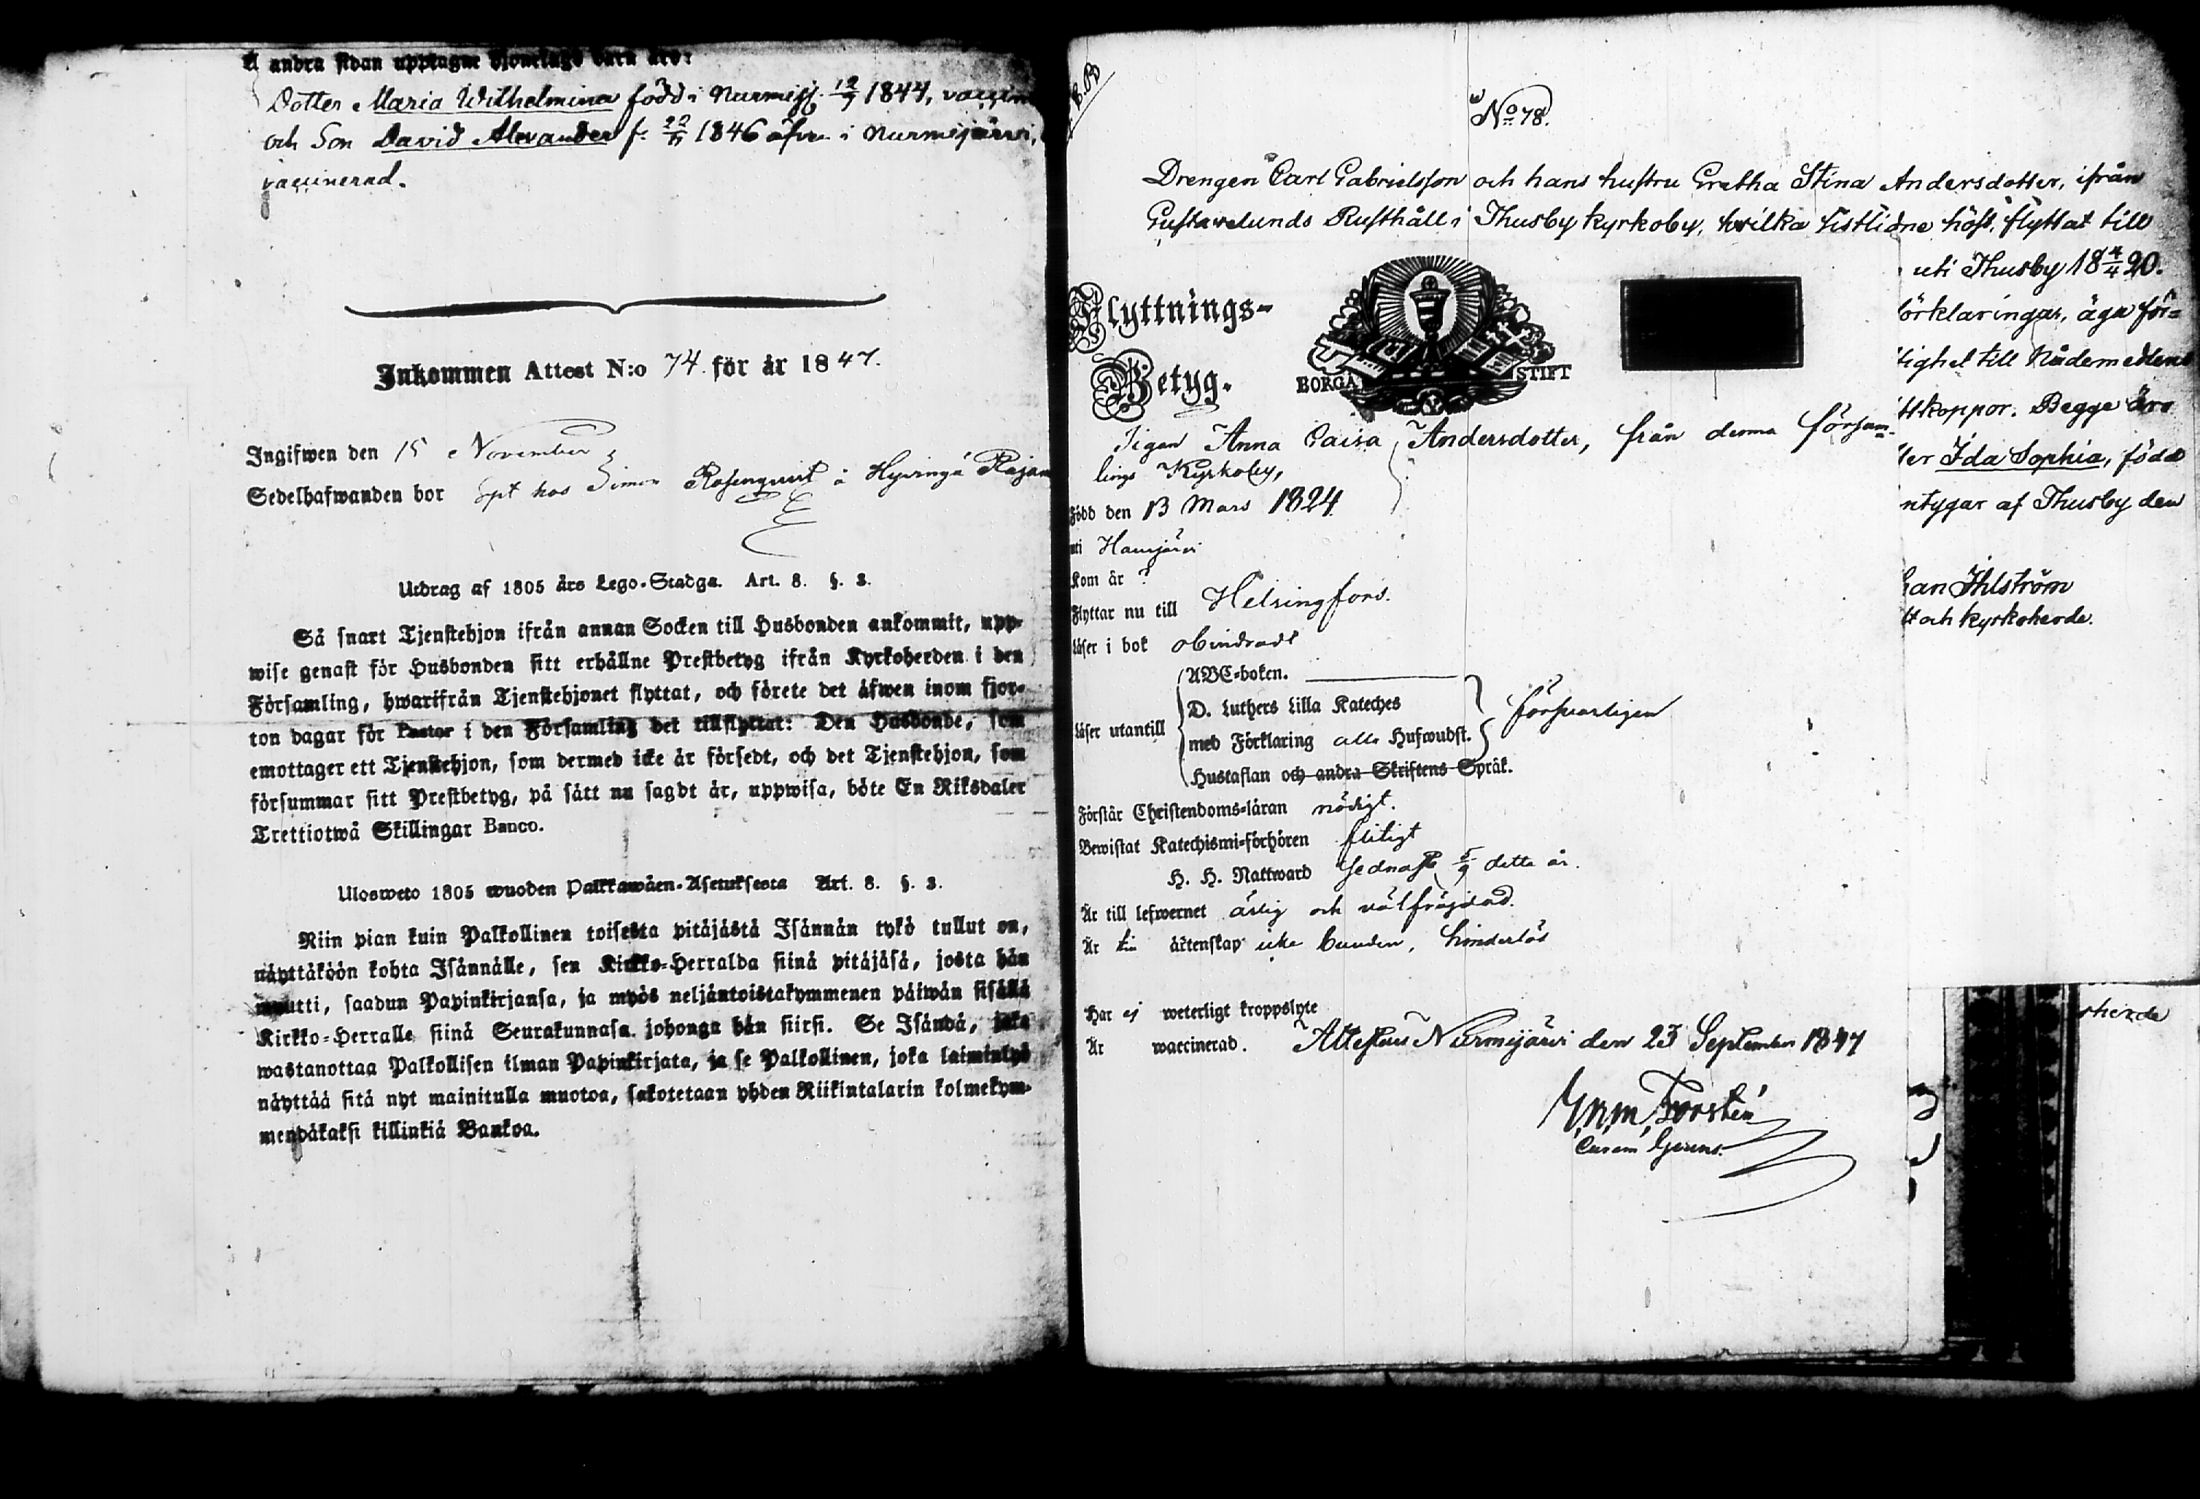 å andra sidan upptagne hjonelags barn äro:
Dotter Maria Wilhelmina född i Nurmijj. 12/7 1844, vaccin
och Son David Alexander f. 1846 äfven i Nurmijärvi,
vaccinerad.
Inkommen Attest N:o 74. för år 1847.
Ingifwen den 15 November
Sedelhafwanden bor hos Simon Rosenqvist å Hyvingä
Utdrag af 1805 års Lego-Stadga. Art. 8. §. 2.
Så snart Tjenstehjon ifrån annan Socken till Husbonden ankommit, upp-
wise genast för Husbonden sitt erhållne Prestbetyg ifrån Kyrkoherden i den
Församling, hwarifrån Tjenstehjonet flyttat, och förete det äfwen inom fjor-
ton dagar för Pastor i den Församling det tillflyttat: Den Husbonde, som
emottager ett Tjenstehjon, som dermed icke är försedt, och det Tjenstehjon, som
försummar sitt Prestbetyg, på sätt nu sagdt är, uppwisa, böte En Riksdaler
Trettiotwå Skillingar Banco.
Ulosweto 1805 wuoden Palkkawäen-Asetuksesta Art. 8. §. 2.
Niin pian kuin Palkollinen toisesta pitäjästä Isännän tykö tullut on,
näyttäköön kohta Isännälle, sen Kirkko-Herralda siinä pitäjäsä, josta hän
muutti, saadun Papinkirjansa, ja myös neljäntoistakymmenen päiwän sisällä
Kirkko-Herralle siinä Seurakunnasa johonga hän siirsi. Se Isändä, joka
wastanottaa Palkollisen ilman Papinkirjata, ja se Palkollinen, joka laiminlyö
näyttää sitä nyt mainitulla muotoa, sakotetaan yhden Riikintalarin kolmekym-
mendäkaksi killinkiä Bankoa.
No 78.
Drengen Carl Gabrielsson och hans hustru Gretha Stina Andersdotter, ifrån
Gustavelunds Rusthåll i Thusby kyrkoby, hvilka sistlidne höst, flyttat till
uti Thusby 18 4/4 20.
örklaringar, äga för=
tighet till Nådemedlens
ttkoppor. Begge äro
ter Ida Sophia, född
ntygar af Thusby den
han Ihlström
tt och kyrkoherde.
Flyttnings-
Betyg.
BORGÅ STIFT
Pigan Anna Caisa Andersdotter, från denna försam-
lings Kyrkoby,
Född den 13 Mars 1824
uti Hausjärvi
Kom år ?
Flyttar nu till Helsingfors.
Läser i bok obindradt
Läser utantill
ABC-boken.
D. Luthers Lilla Kateches
med Förklaring alla Hufwudst. försvarligen
Hustaflan och andra Skriftens Språk.
Förstår Christendoms-läran nödigt.
Bewistat Katechismi-förhören flitigt
H. H. Nattward sednast 5/9 detta år.
Är till lefwernet ärlig och välfräjdad.
Är till äktenskap icke bunden, hinderlös
Har ej weterligt kroppslyte
Är waccinerad. Attesteras Nurmijärvi den 23 September 1847
Forstén
herde